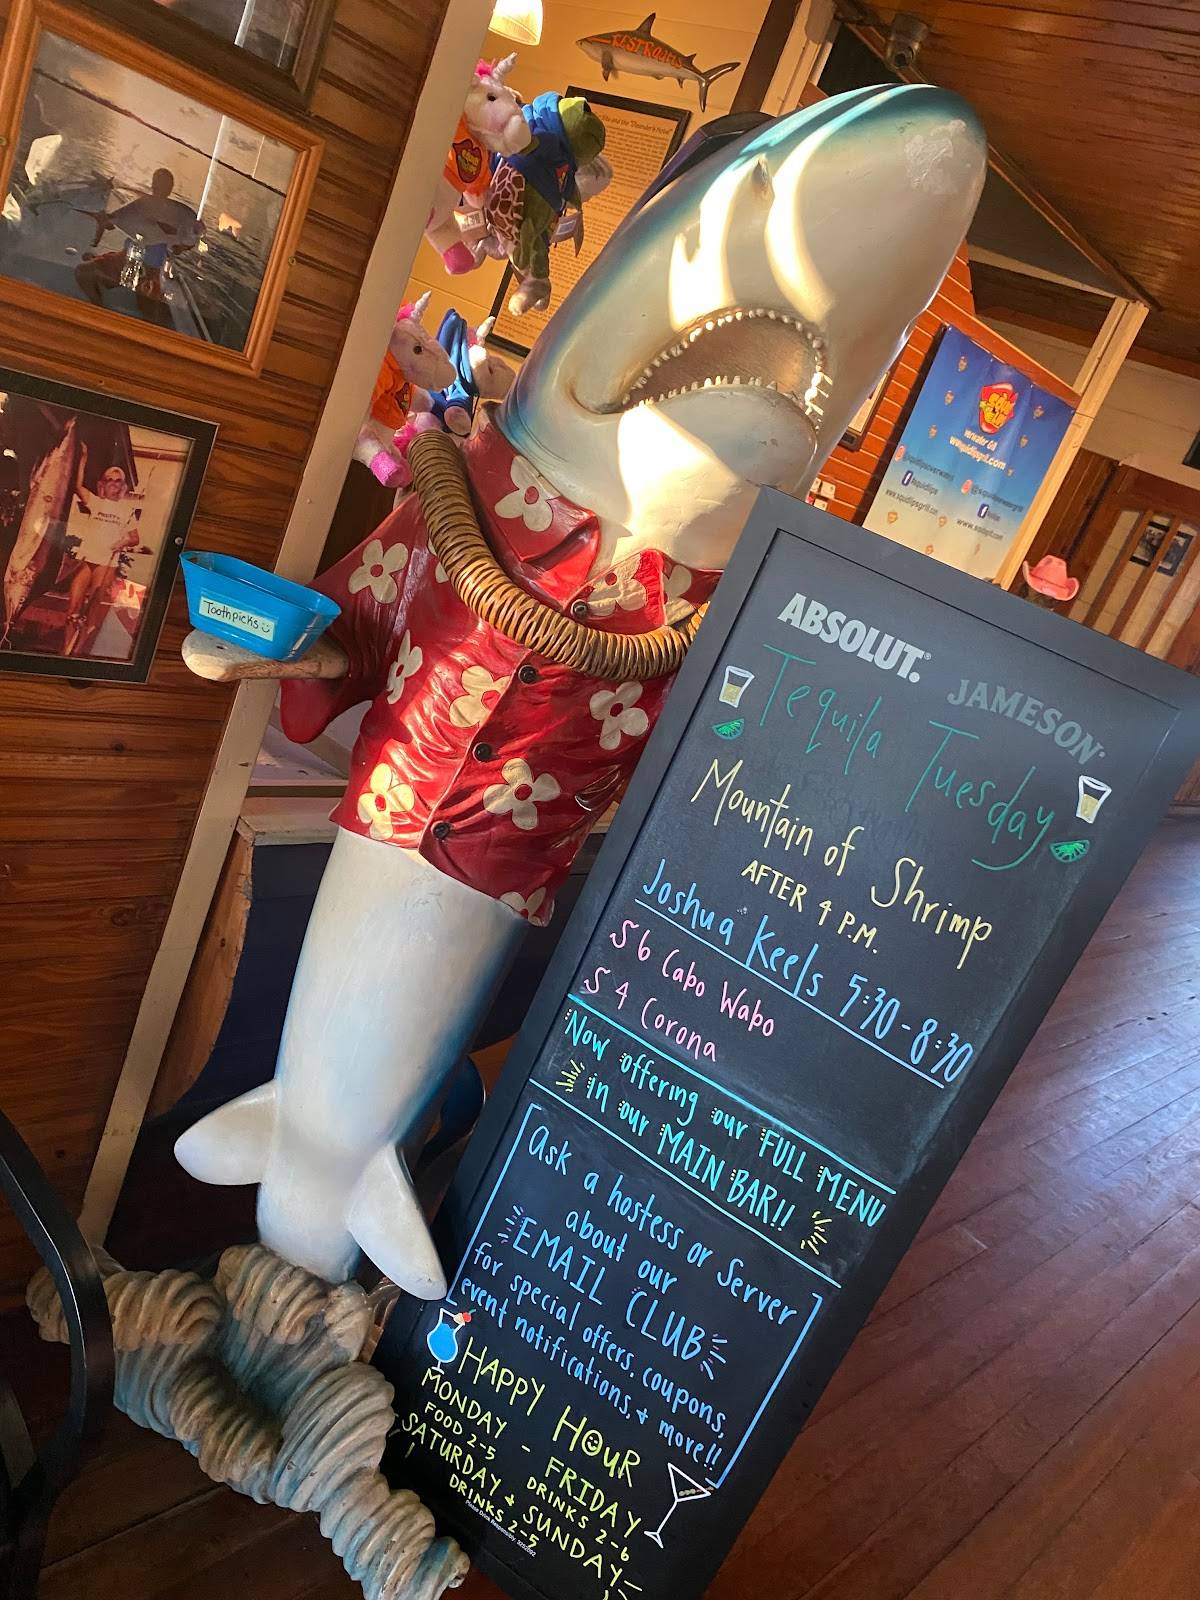 RESTROOMS
Toothpicks
ABSOLUT.
JAMESON
Tequila Tuesday
Mountain of Shrimp
AFTER 4 P.M.
Joshua Keels 5:30-8:30
$6 Cabo Wabo
$4 Corona
Now offering our FULL MENU
in our MAIN BAR!!
Ask a hostess or Server
about our
EMAIL CLUB
for special offers, coupons,
event notifications, & more!!
HAPPY HOUR
MONDAY - FRIDAY
FOOD 2-5 DRINKS 2-6
SATURDAY & SUNDAY-
DRINKS 2-5
Please Drink Responsibly.